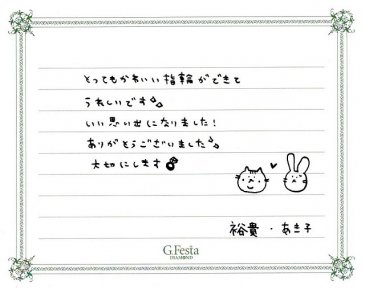 とってもかわいい指輪ができて
うれしいです♪
いい思い出になりました!
ありがとうございました♪
大切にします
裕貴・あき子
G.Festa
DIAMOND